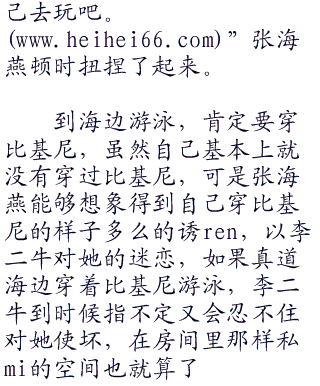 己去玩吧。
(www.heihei66.com)”张海
燕顿时扭捏了起来。
到海边游泳，肯定要穿
比基尼，虽然自己基本上就
没有穿过比基尼，可是张海
燕能够想象得到自己穿比基
尼的样子多么的诱ren，以李
二牛对她的迷恋，如果真道
海边穿着比基尼游泳，李二
牛到时候指不定又会忍不住
对她使坏，在房间里那样私
mi的空间也就算了